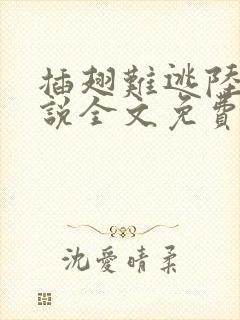 插翅難逃陸
說全文免費
沈愛晴柔